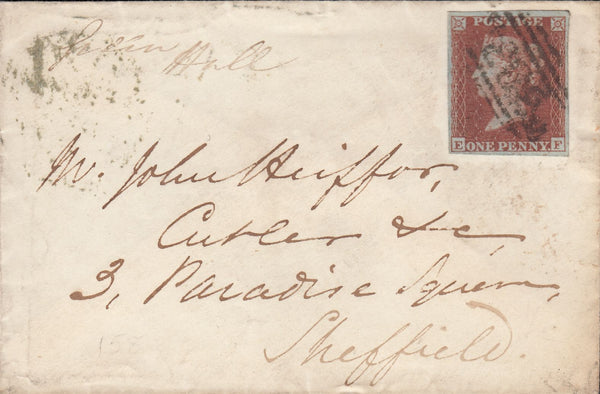 Hall
POSTAGE
E ONE PENNY F
Mr. John Heiffor,
Cutler &c,
3, Paradise Square,
Sheffield.